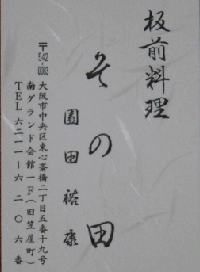 板前料理
その田
園田裕康
〒542-0083
大阪市中央区東心斎橋二丁目五番十九号
南グランド会館一F(旧笠屋町)
TEL 六二一一ー六二〇六番